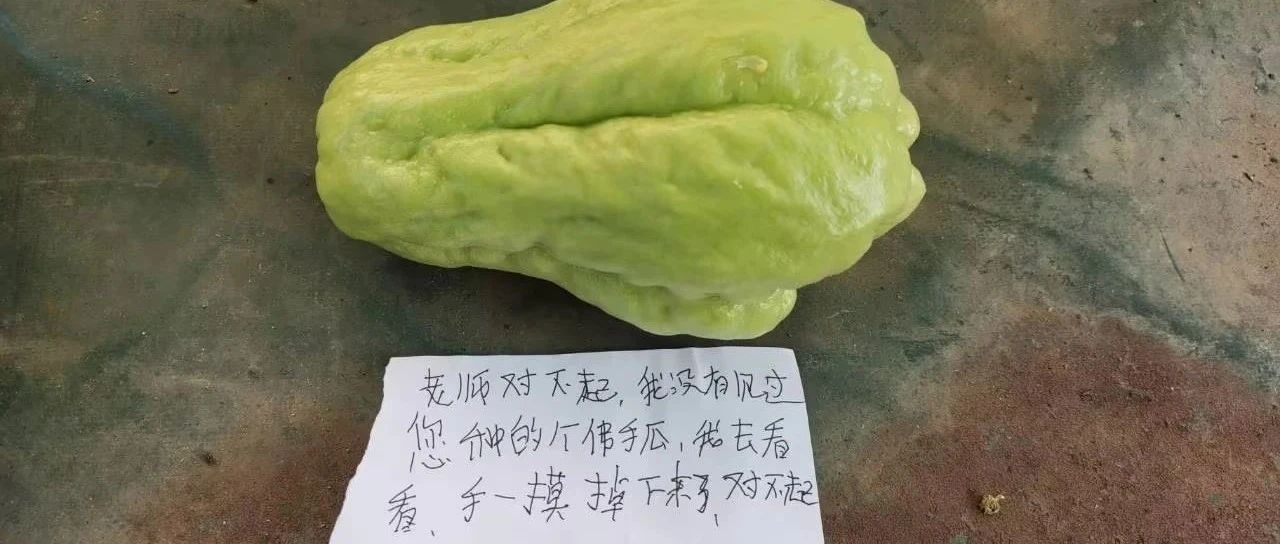 老师对不起,我没有见过
您种的个佛手瓜,我去看
看、手一摸掉下来了,对不起